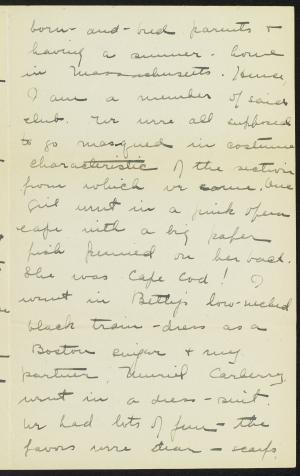 born-and-bred parents &
having a summer-home
in Massachusetts. Hence,
I am a member of said
club. We were all supposed
to go masqued in costume
characteristic of the section
from which we come. One
girl went in a pink opera
cape with a big paper
fish pinned on her back.
She was Cape Cod! I
went in Betty's low-necked
black train-dress as a
Boston singer & my
partner, Muriel Carberry,
went in a dress-suit.
We had lots of fun - the
favors were dear - scarfs,